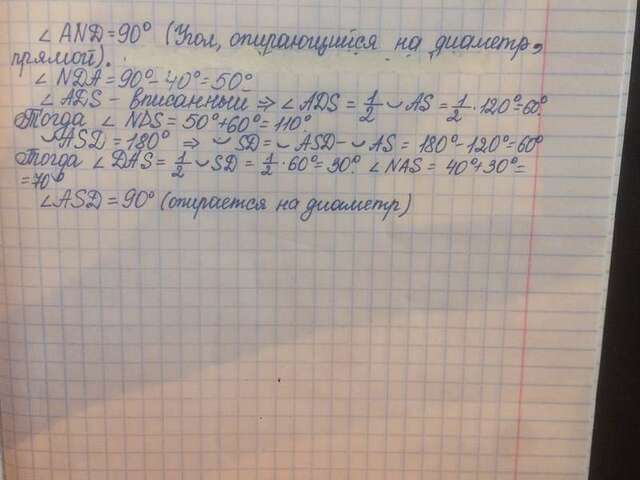 ∠AND = 90° (Угол, опирающийся на диаметр,
прямой).
∠NDA = 90° - 40° = 50°
∠ADS - вписанный ⇒ ∠ADS = 1/2 ◡AS = 1/2 · 120° = 60°.
Тогда ∠NDS = 50° + 60° = 110°.
◡ASD = 180° ⇒ ◡SD = ◡ASD - ◡AS = 180° - 120° = 60°
Тогда ∠DAS = 1/2 ◡SD = 1/2 · 60° = 30°. ∠NAS = 40° + 30° =
= 70°
∠ASD = 90° (опирается на диаметр)